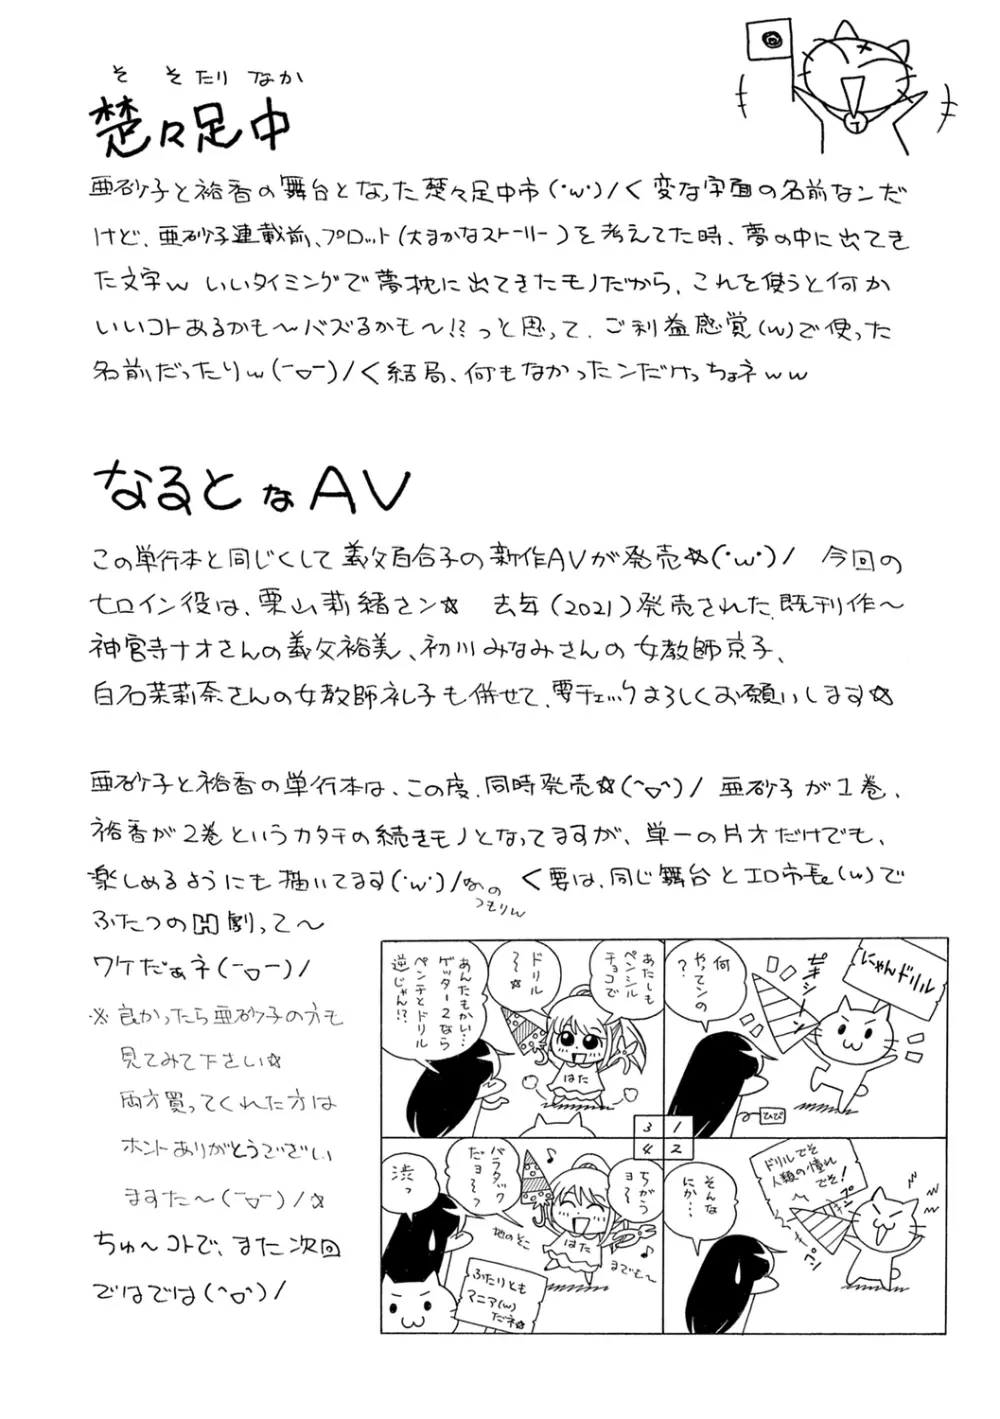 そ そたり なか
楚々足中
亜砂子と裕香の舞台となった楚々足中市(・w・)/く変な字面の名前なンだ
けど、亜砂子連載前、プロット(大まかなストーリー)を考えてた時、夢の中に出てき
た文字w いいタイミングで夢枕に出てきたモノだから、これを使うと何か
いいコトあるかも〜バズるかも〜!?っと思って、ご利益感覚(w)で使った
名前だったりw(-▽-)/く結局、何もなかったンだけっちょネww
なるとなAV
この単行本と同じくして義父百合子の新作AVが発売☆(・w・)/ 今回の
ヒロイン役は、栗山莉緒さン☆ 去年(2021)発売された、既刊作〜
神宮寺ナオさんの義父裕美、初川みなみさんの女教師京子、
白石茉莉奈さんの女教師礼子も併せて、要チェックよろしくお願いします☆
亜砂子と裕香の単行本は、この度、同時発売☆(^▽^)/ 亜砂子が1巻、
裕香が2巻というカタチの続きモノとなってますが、単一の片方だけでも、
楽しめるようにも描いてます(・w・)/なのつもりw く要は、同じ舞台とエロ市長(w)で
ふたつのH劇って〜
ワケだぁネ(-▽-)/
※良かったら亜砂子の方も
見てみて下さい☆
両方買ってくれた方は
ホントありがとうござい
ますた〜(-▽-)/☆
ちゅ〜コトで、また次回
ではでは(^▽^)/
にゃんドリル
ギュイーン
何
やってンの
?
ひび
1
ドリルでそ
人類の憧れ
でそ!
そんな
にか…
2
あたしも
ペンシル
チョコで
ドリル
〜☆
あんたもかい…
ゲッター2なら
ペンチとドリル
逆じゃん!?
はた
3
ちがう
ヨ〜う
までも〜
バラタック
だヨ〜っ
地のそこ
はた
渋っ
ふたりとも
マニア(w)
だネ☆
4